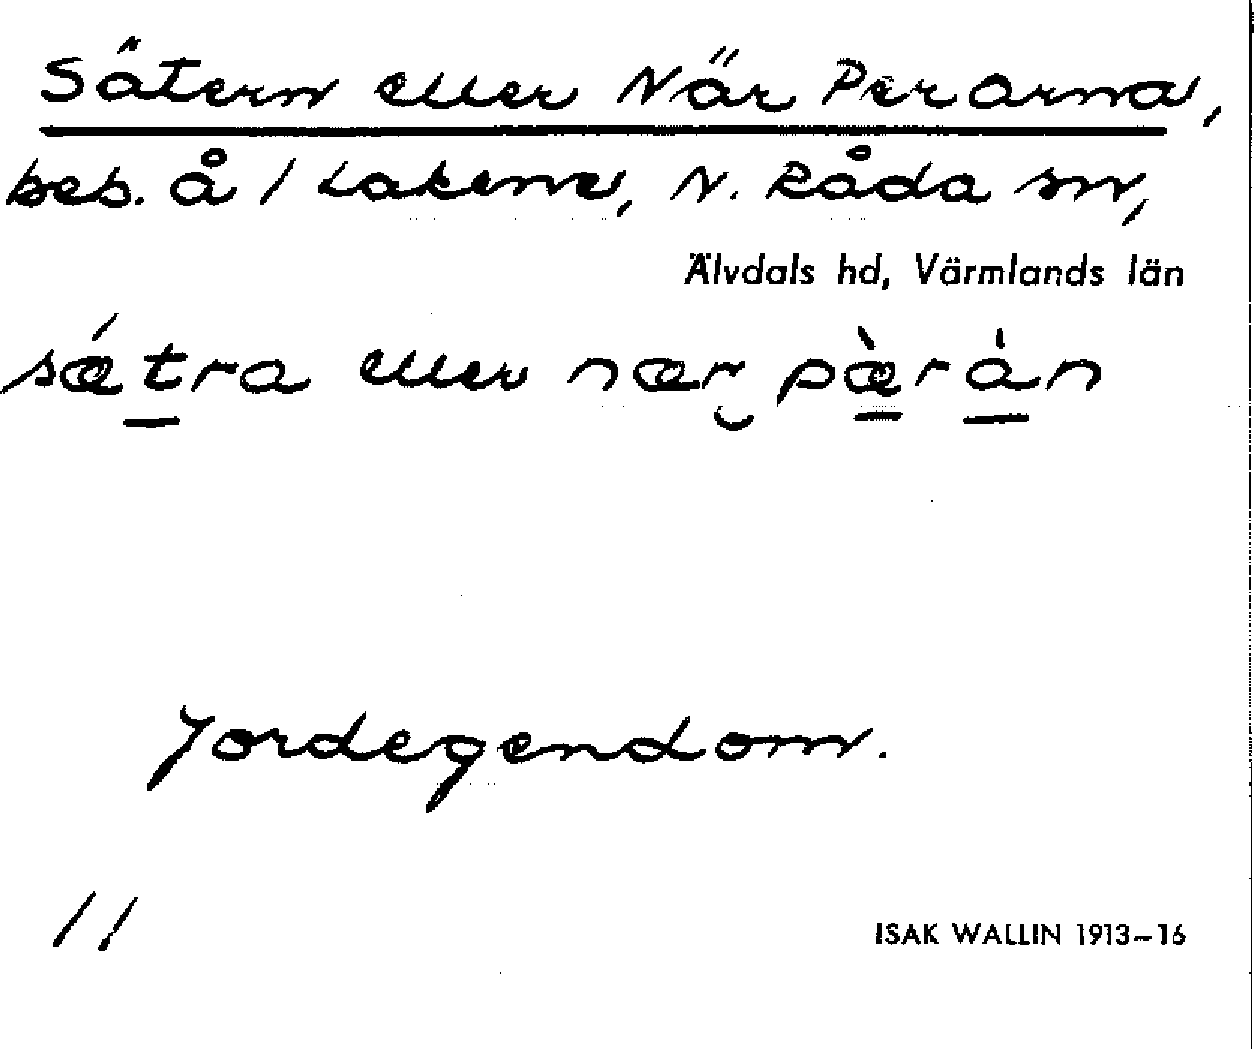 Sätern eller När Perarna,
beb. å 1 Lakene, N. Råda sn,
Älvdals hd, Värmlands län
sǽtra eller nær pæ̀rȧn
Jordegendom.
11
ISAK WALLIN 1913–16